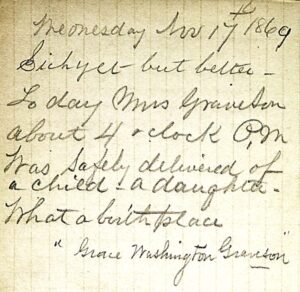 Wednesday Nov 17th 1869
Sick yet - but better -
To day Mrs Graveson
about 4 o clock P.M
Was safely delivered of
a child - a daughter -
What a birth place
"Grace Washington Graveson"